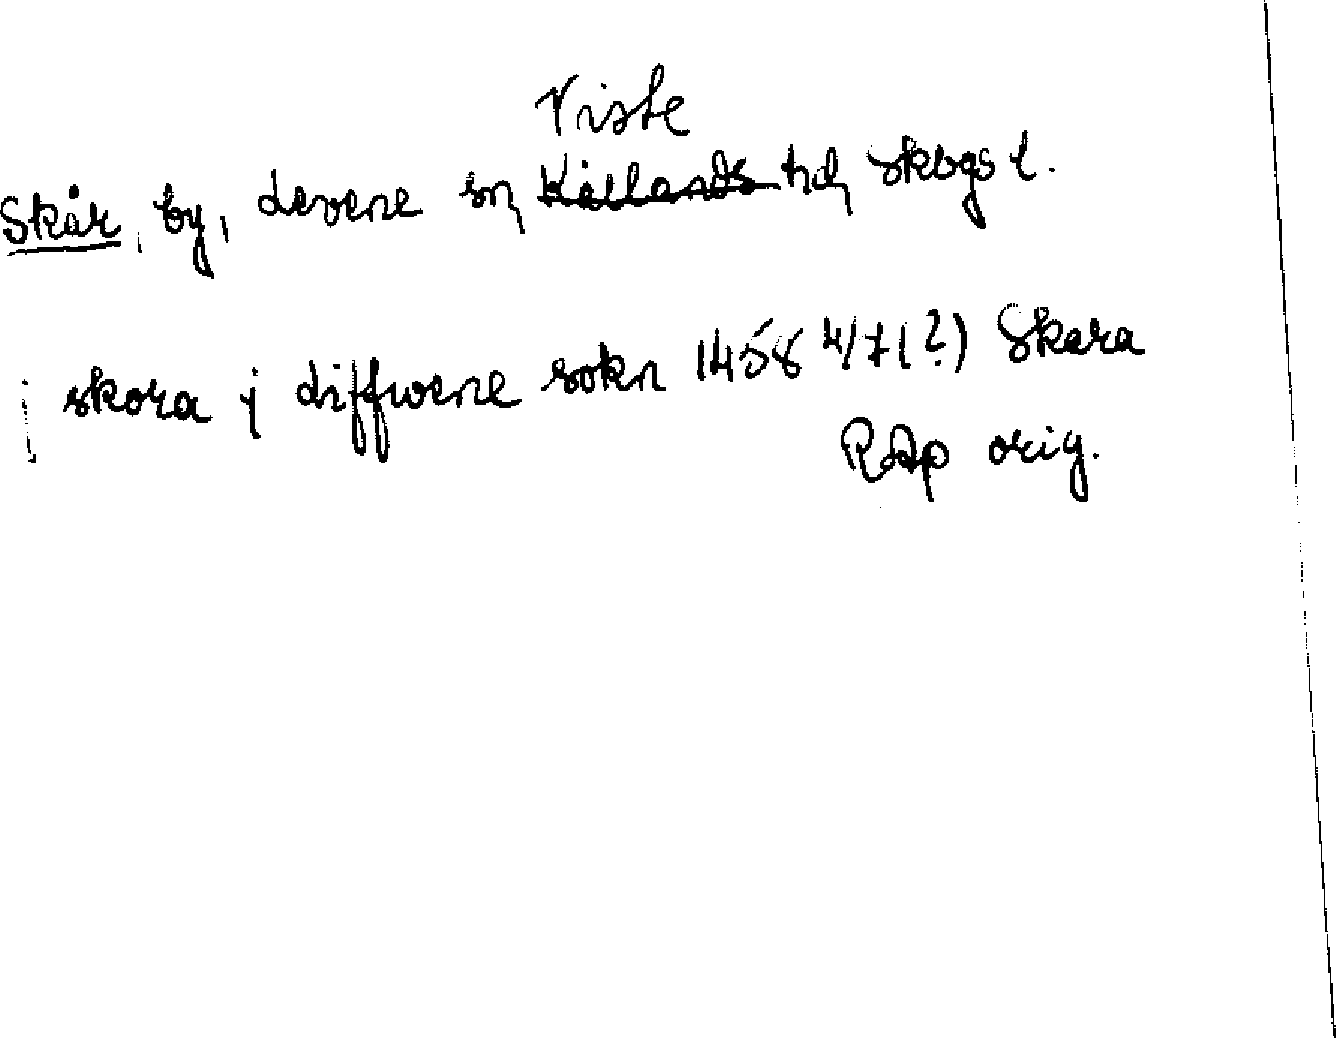 Viste
Skår, by, Levene sn, Kållands hd, skogs l.
j skora j liffwene sokn 1458 4/7(?) Skara
RAp orig.